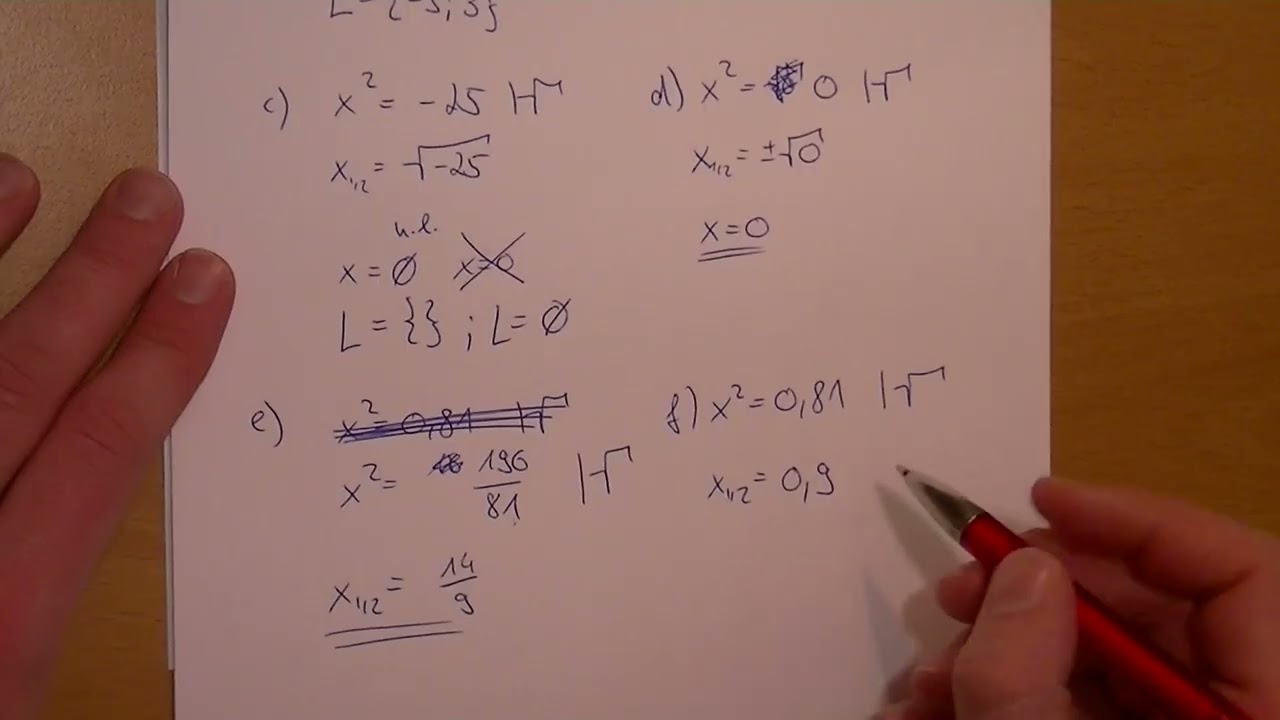 L = {-3; 3}
c) x² = -25 |√
x₁,₂ = √-25
n.l.
x = ∅ x=0
L = {} ; L = ∅
d) x² = 0 |√
x₁,₂ = ±√0
x = 0
e) x² = 0,81 |√
x² = 196/81 |√
x₁,₂ = 14/9
f) x² = 0,81 |√
x₁,₂ = 0,9